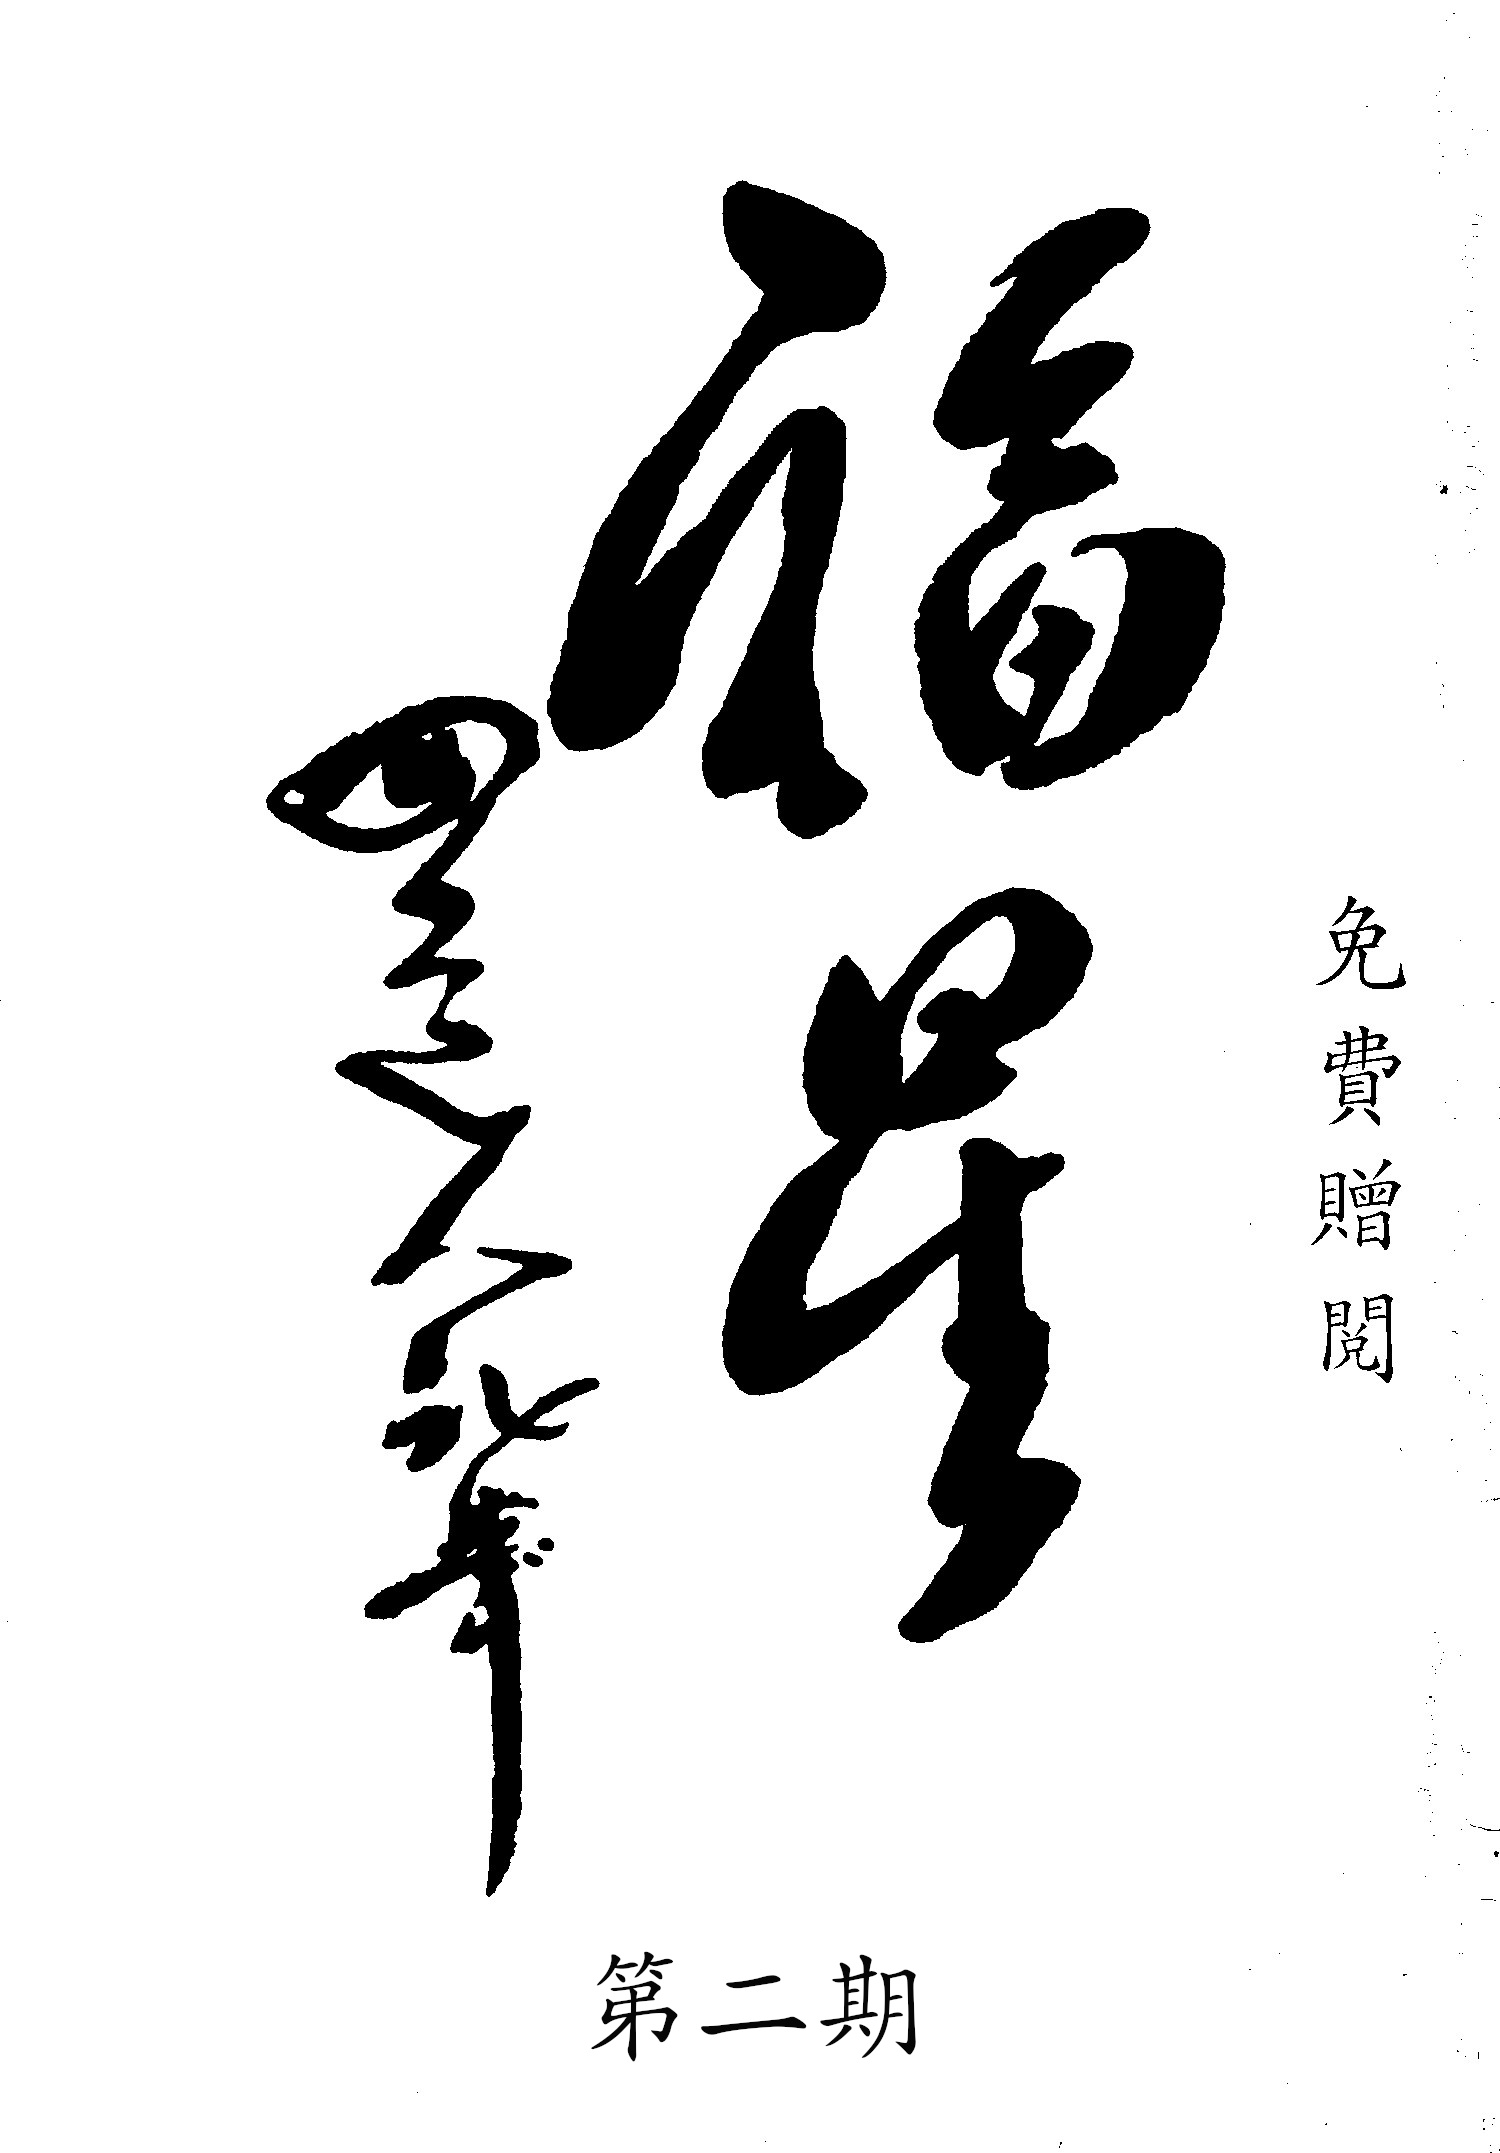 免費贈閱
福星
第二期